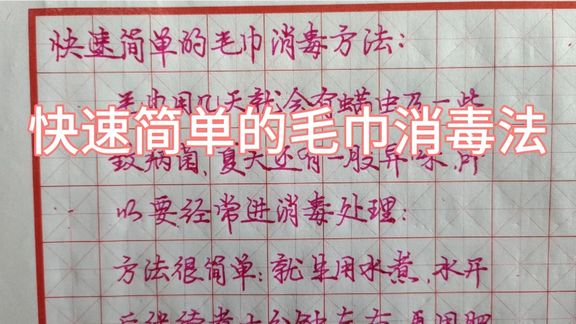 快速简单的毛巾消毒方法:
毛巾用几天就会有螨虫及一些
快速简单的毛巾消毒法
致病菌,夏天还有一股异味,所
以要经常进消毒处理:
方法很简单:就是用水煮,水开
后继续煮十分钟左右,再用肥